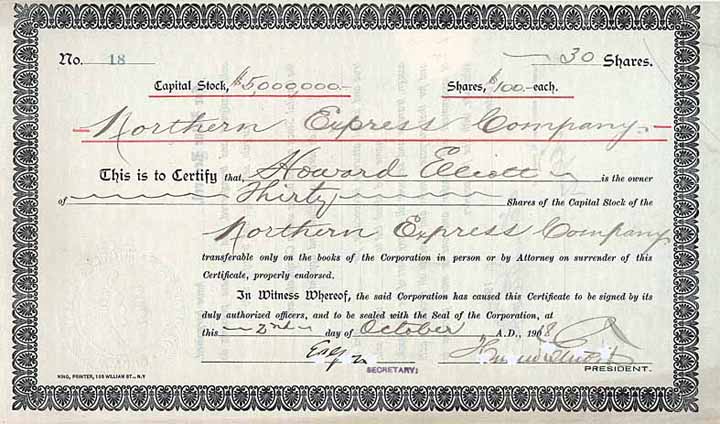 No. 18
30 Shares.
Capital Stock, $5,000,000.- Shares, $100.- each.
Northern Express Company.
This is to Certify that, Howard Elliott is the owner
of Thirty Shares of the Capital Stock of the
Northern Express Company
transferable only on the books of the Corporation in person or by Attorney on surrender of this
Certificate, properly endorsed.
In Witness Whereof, the said Corporation has caused this Certificate to be signed by its
duly authorized officers, and to be sealed with the Seal of the Corporation, at
this 2nd day of October A.D., 19
SECRETARY.
PRESIDENT.
KING, PRINTER, 105 WILLIAM ST., N.Y